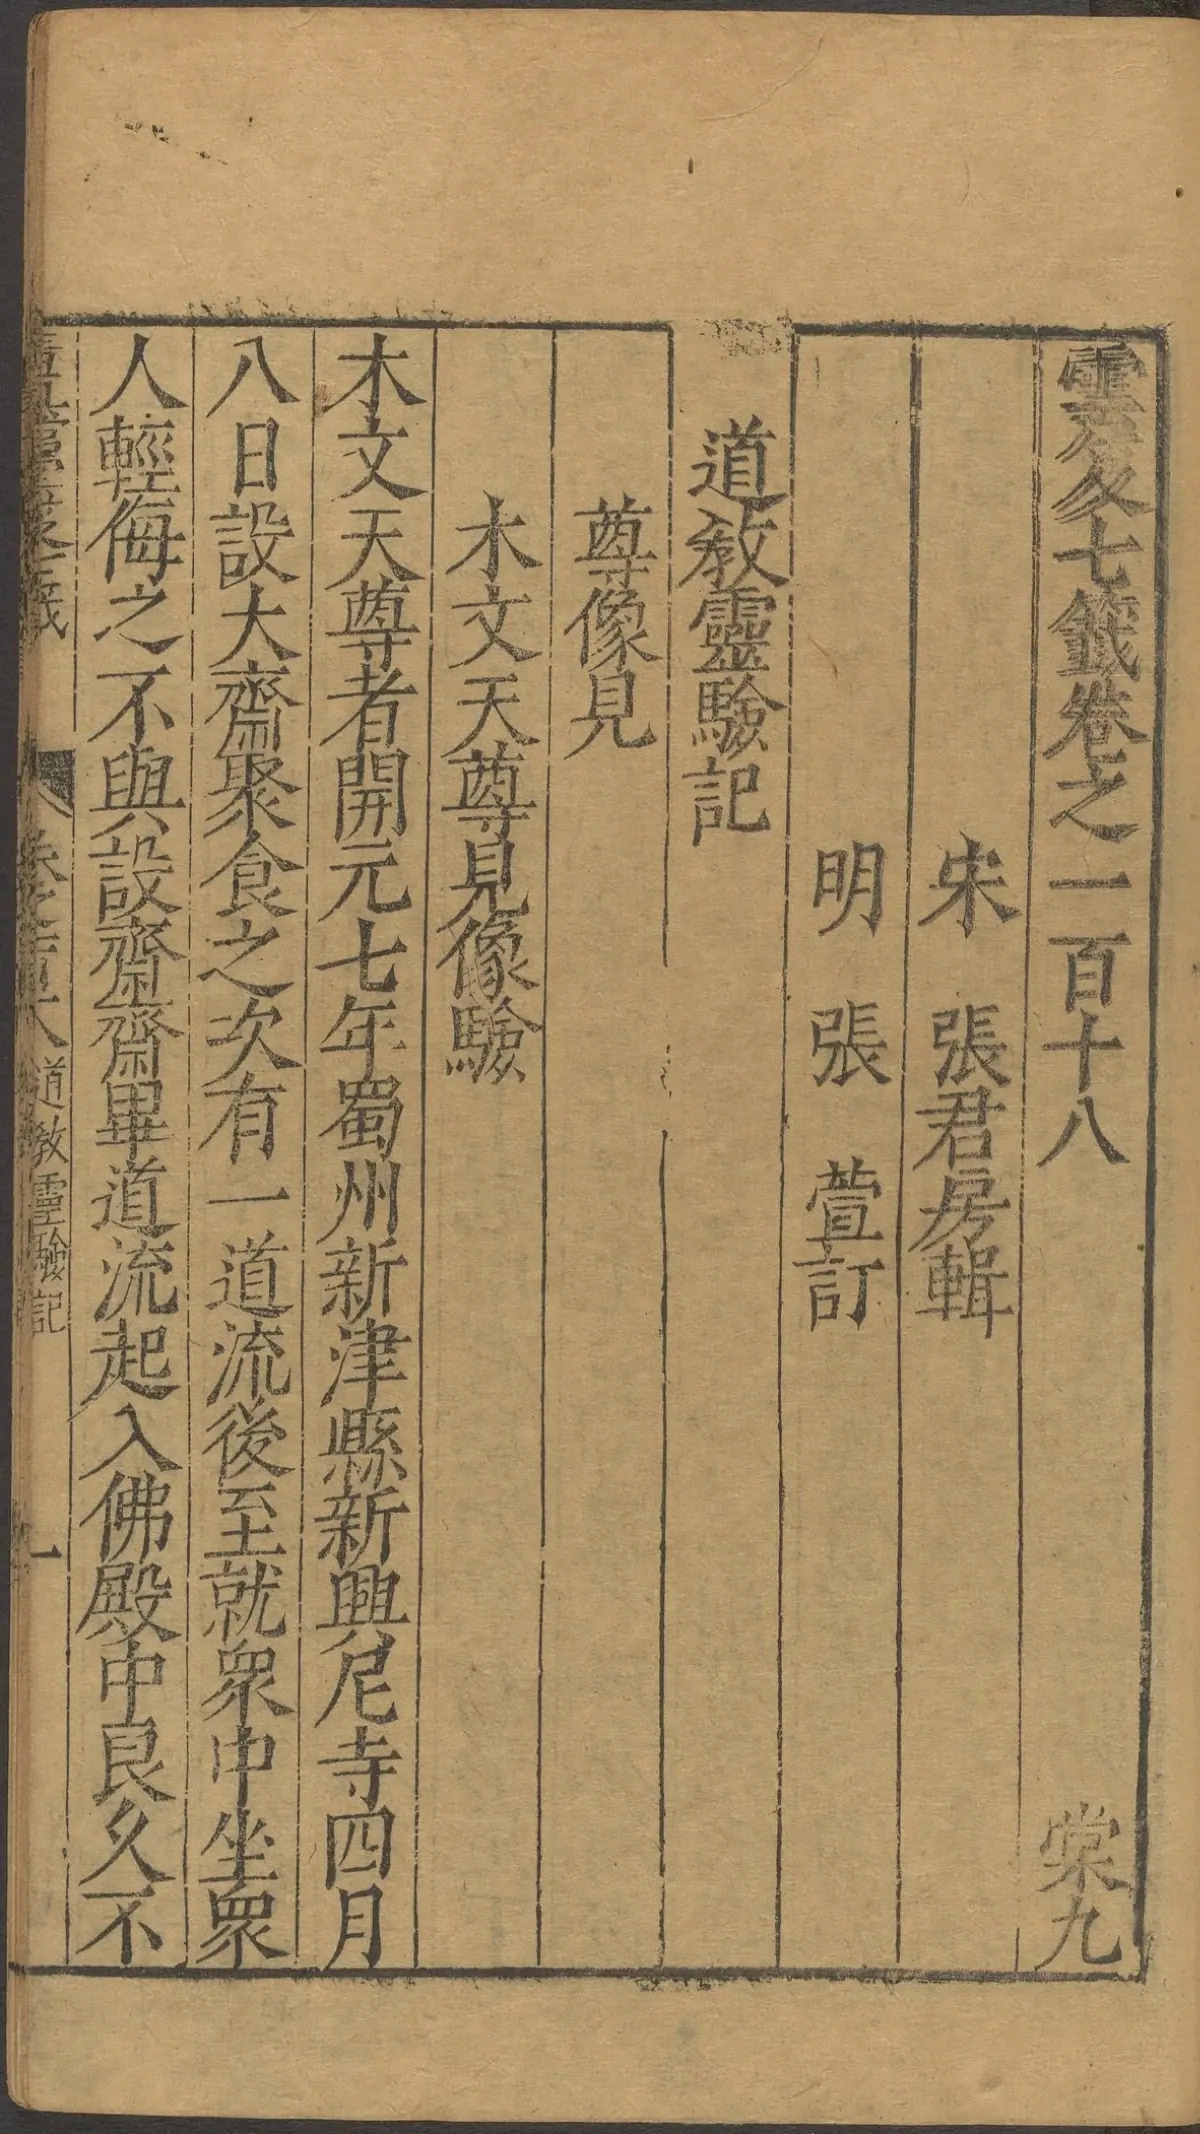 雲笈七籤卷之一百十八 棠九
宋 張君房輯
明 張 萱訂
道教靈驗記
尊像見
木文天尊見像驗
木文天尊者開元七年蜀州新津縣新興尼寺四月
八日設大齋聚食之次有一道流後至就衆中坐衆
人輕侮之不與設齋齋畢道流起入佛殿中良久不
卷之一百十八 道教靈驗記 一